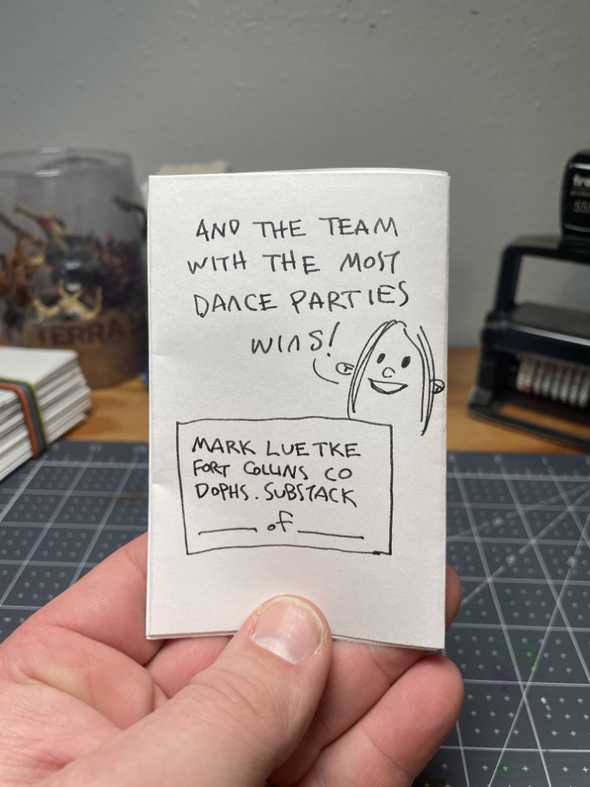 AND THE TEAM
WITH THE MOST
DANCE PARTIES
WINS!
MARK LUETKE
FORT COLLINS CO
DOPHS.SUBSTACK
____ of ____
TERRA